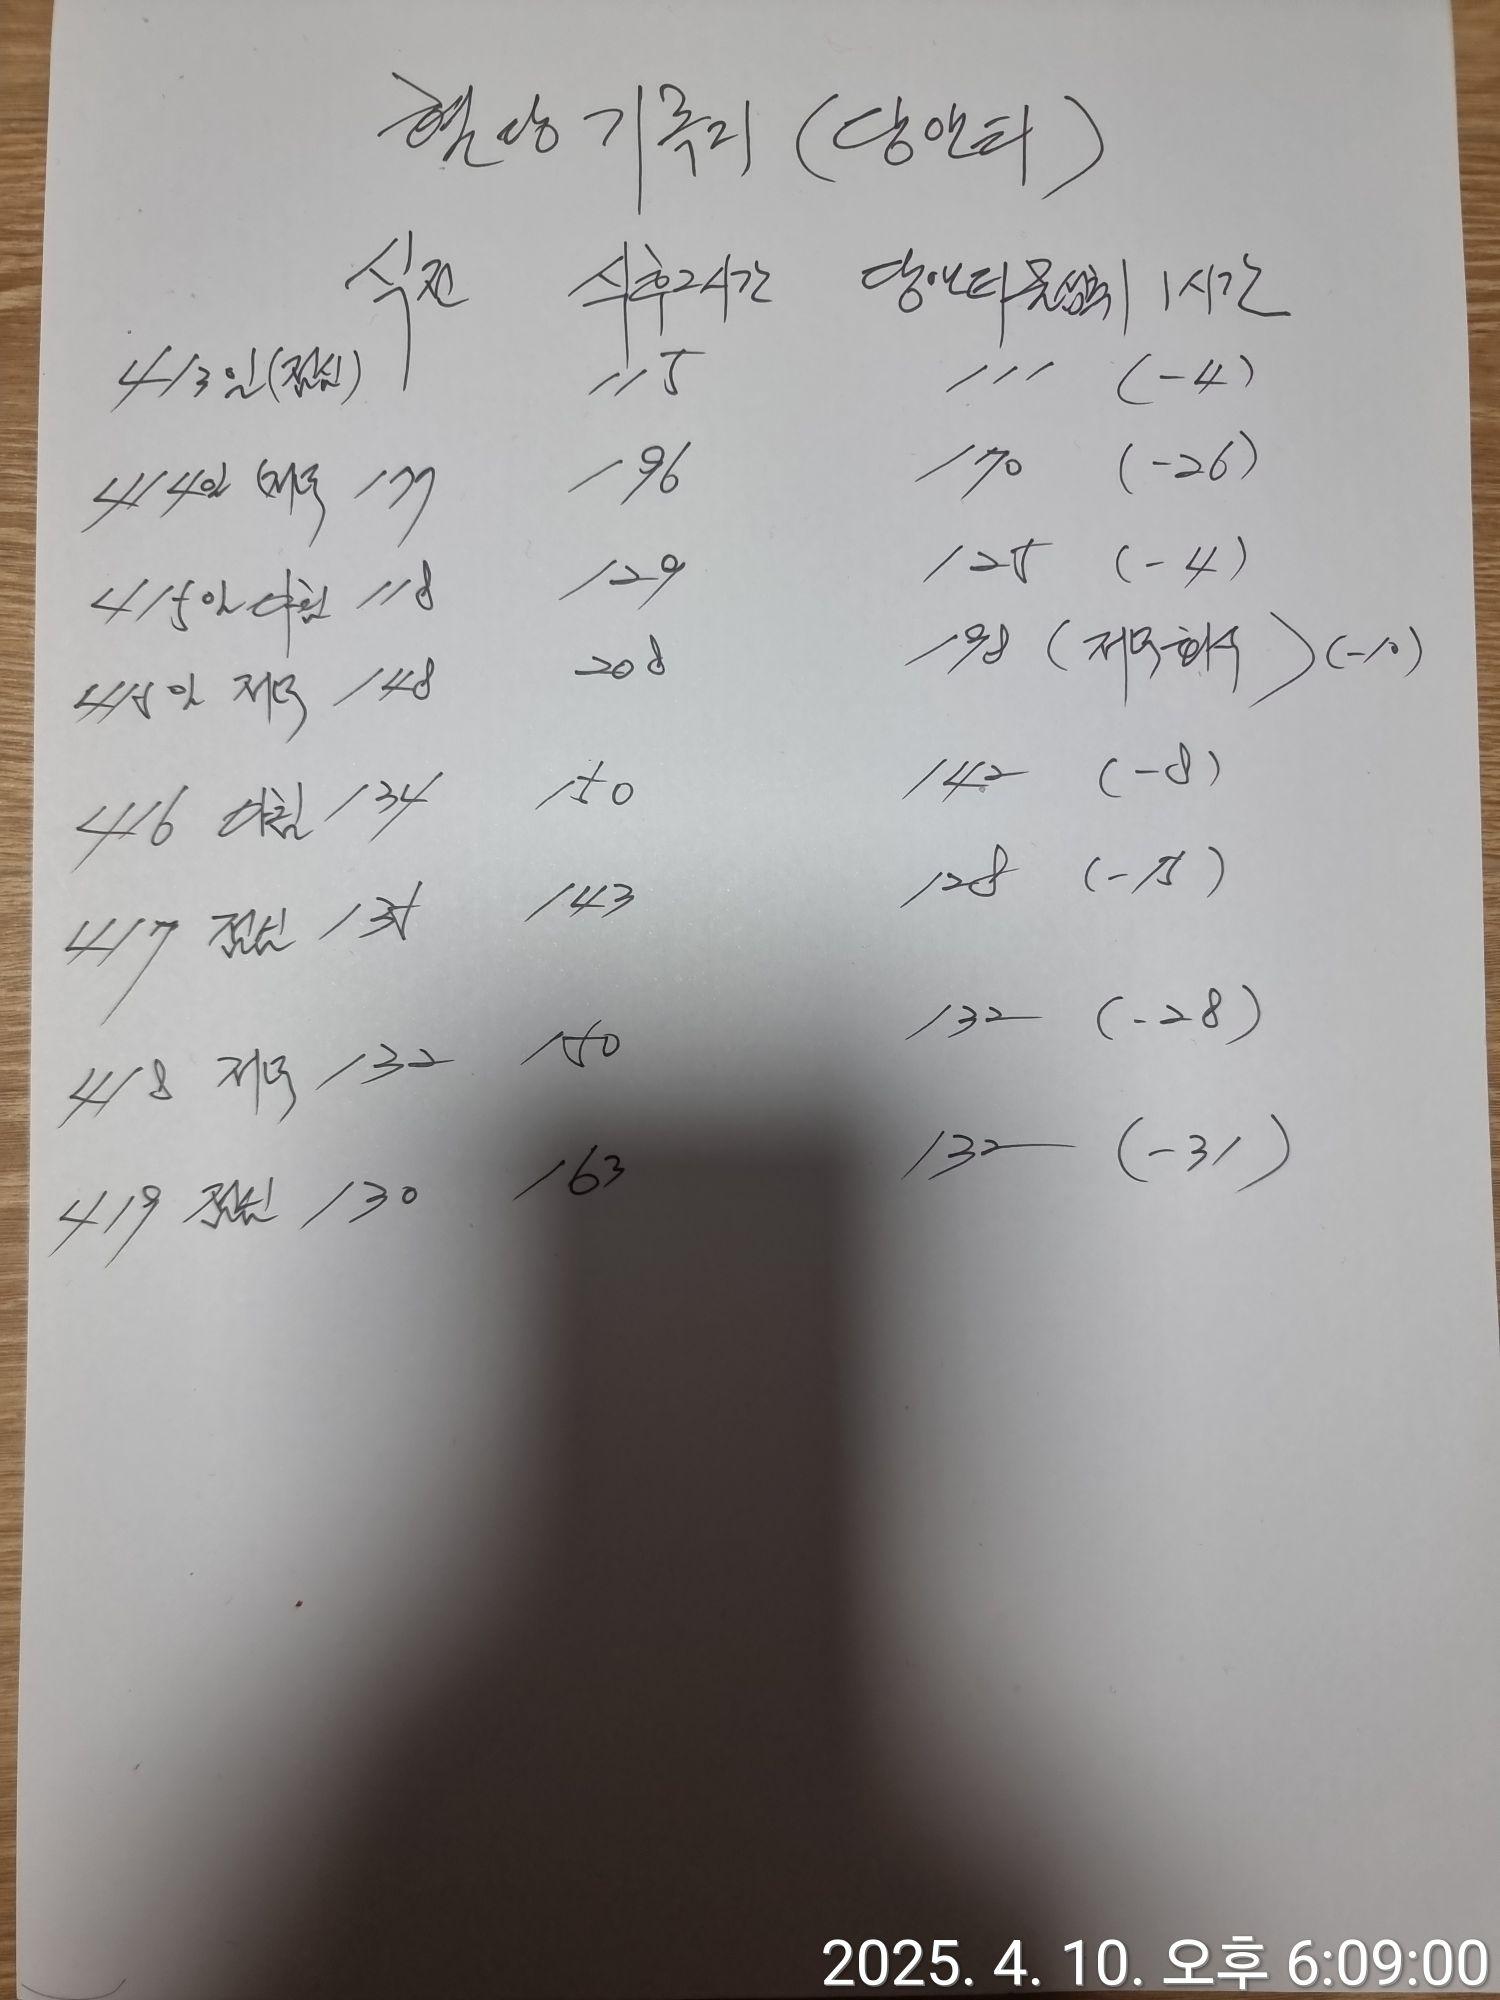 혈당 기록지 (당앤타)
식전 식후2시간 당앤타 섭취 1시간
4/3일(점심) 115 111 (-4)
4/4일 저녁 177 196 170 (-26)
4/5일 아침 118 129 125 (-4)
4/5일 저녁 148 208 198 (저녁식후) (-10)
4/6 아침 134 150 142 (-8)
4/7 점심 135 143 128 (-15)
4/8 저녁 132 150 132 (-28)
4/9 점심 130 163 132 (-31)
2025. 4. 10. 오후 6:09:00